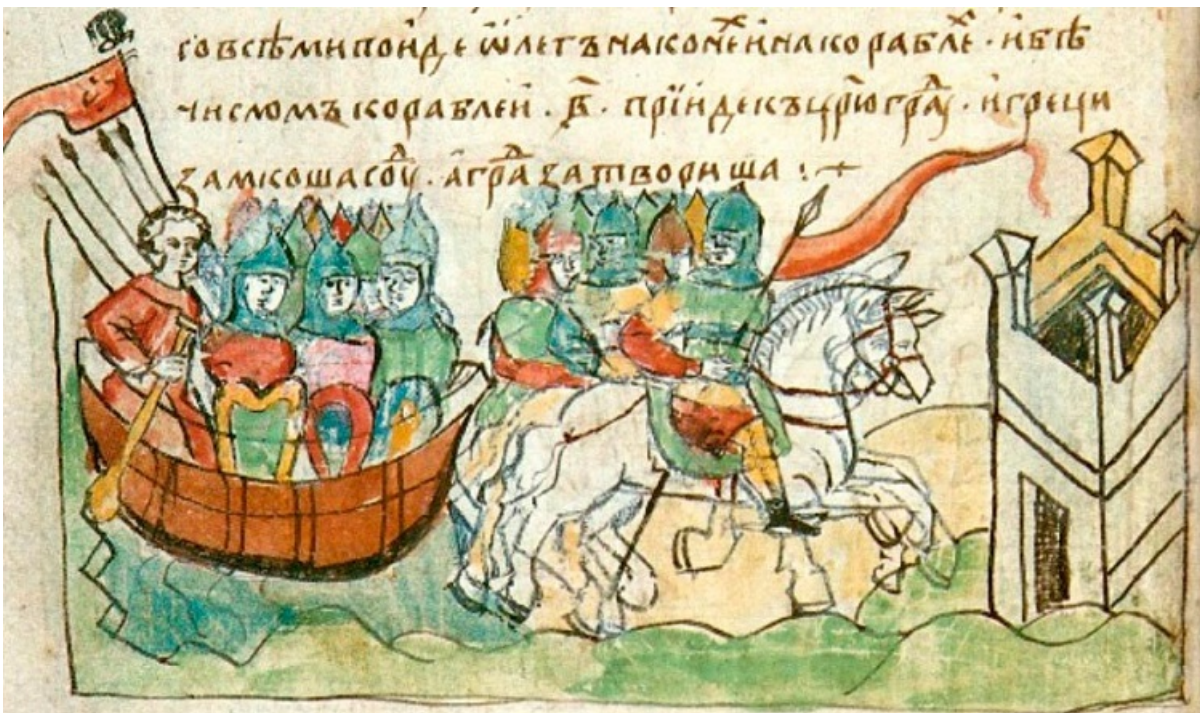 со всѣми поиде ѡлегъ на конеⷯ и на кораблеⷯ · и бѣ
числомъ кораблеи · в҃ · прїиде къ цр҃югра́ⷣу · и греци
замкоша соуⷣ · а граⷣ затвориша :+